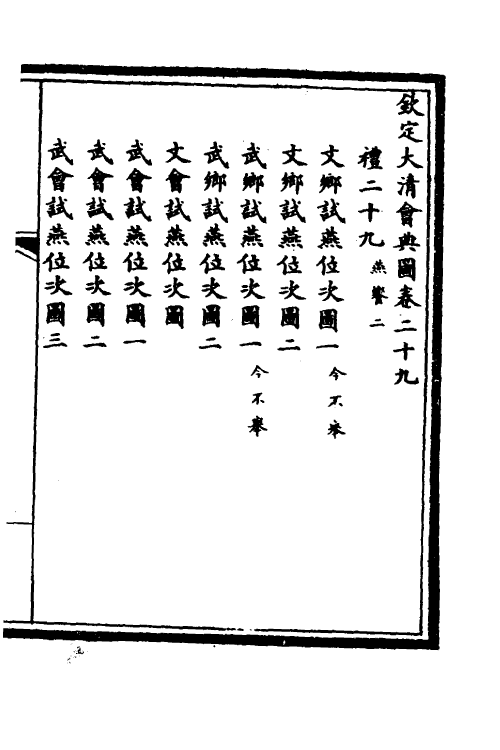 欽定大清會典圖卷二十九
禮二十九燕饗二
文鄉試燕位次圖一今不舉
文鄉試燕位次圖二
武鄉試燕位次圖一今不舉
武鄉試燕位次圖二
文會試燕位次圖
武會試燕位次圖一
武會試燕位次圖二
武會試燕位次圖三